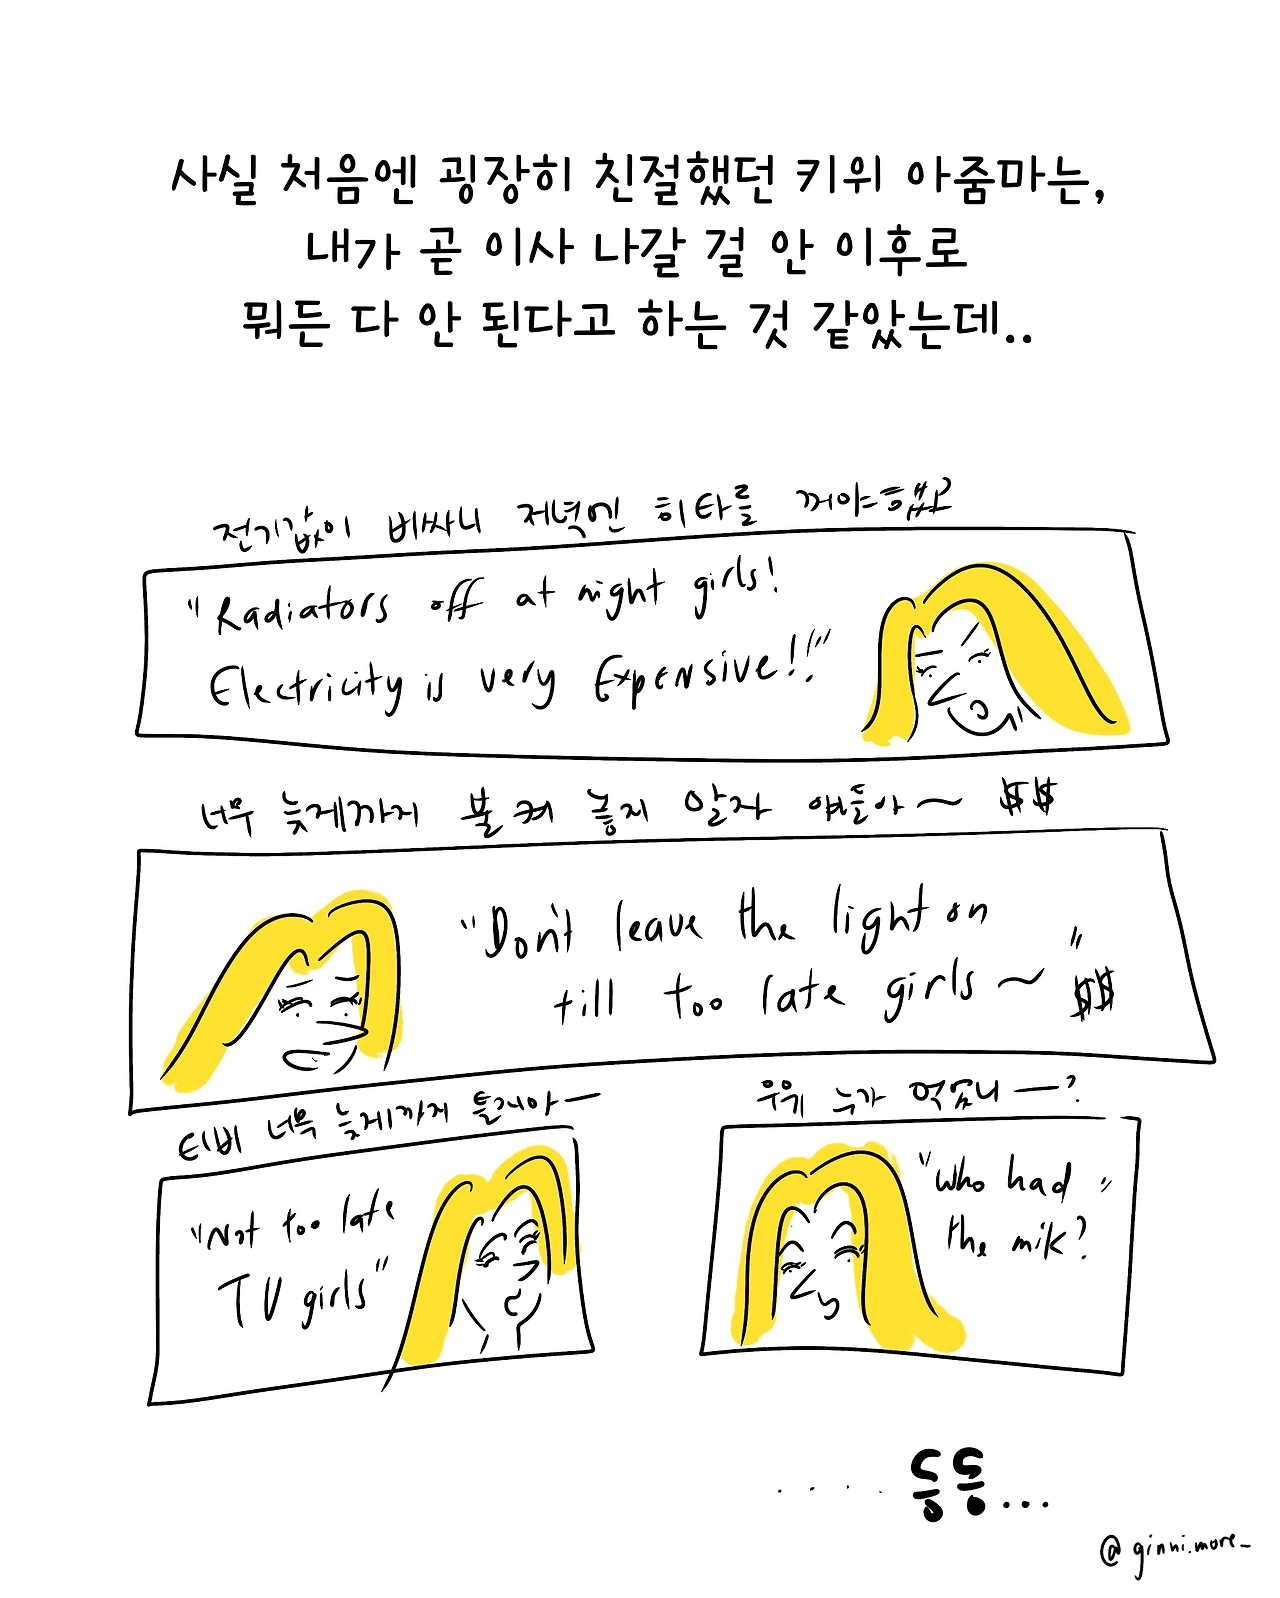 사실 처음엔 굉장히 친절했던 키위 아줌마는,
내가 곧 이사 나갈 걸 안 이후로
뭐든 다 안 된다고 하는 것 같았는데..
전기값이 비싸니 저녁엔 히타를 꺼야했고
"Radiators off at night girls!
Electricity is very Expensive!!"
너무 늦게까지 불 켜 놓지 말자 얘들아~ $$
"Don't leave the light on
till too late girls~" $$
티비 너무 늦게까지
"Not too late
TV girls"
우유 누가 먹었니ㅡ?
"Who had
the mik?"
.... 둥둥...
@ginni.more_